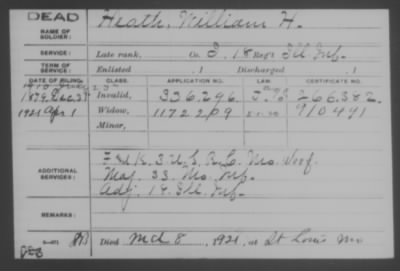 DEAD
NAME OF SOLDIER: Heath, William H.
SERVICE: Late rank, Co. 18 Reg't Ill. Inf.
TERM OF SERVICE: Enlisted , 1 Discharged , 1
DATE OF FILING. CLASS. APPLICATION NO. LAW. CERTIFICATE NO.
1879 Dec 31 Invalid, 336.296 266.382
1921 Apr 1 Widow, 1172209 910491
Minor,
ADDITIONAL SERVICES: F & K. 3 U.S. R.C. Mo. Inf.
Maj. 33. Mo. Inf.
Adj. 18 Ill. Inf.
REMARKS:
Died Mch 8, 1921, at St Louis Mo